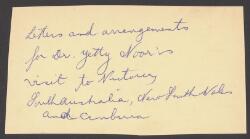 Letters and arrangements
for Dr. Yetty Noor's
visit to Victoria,
South Australia, New South Wales
and Canberra